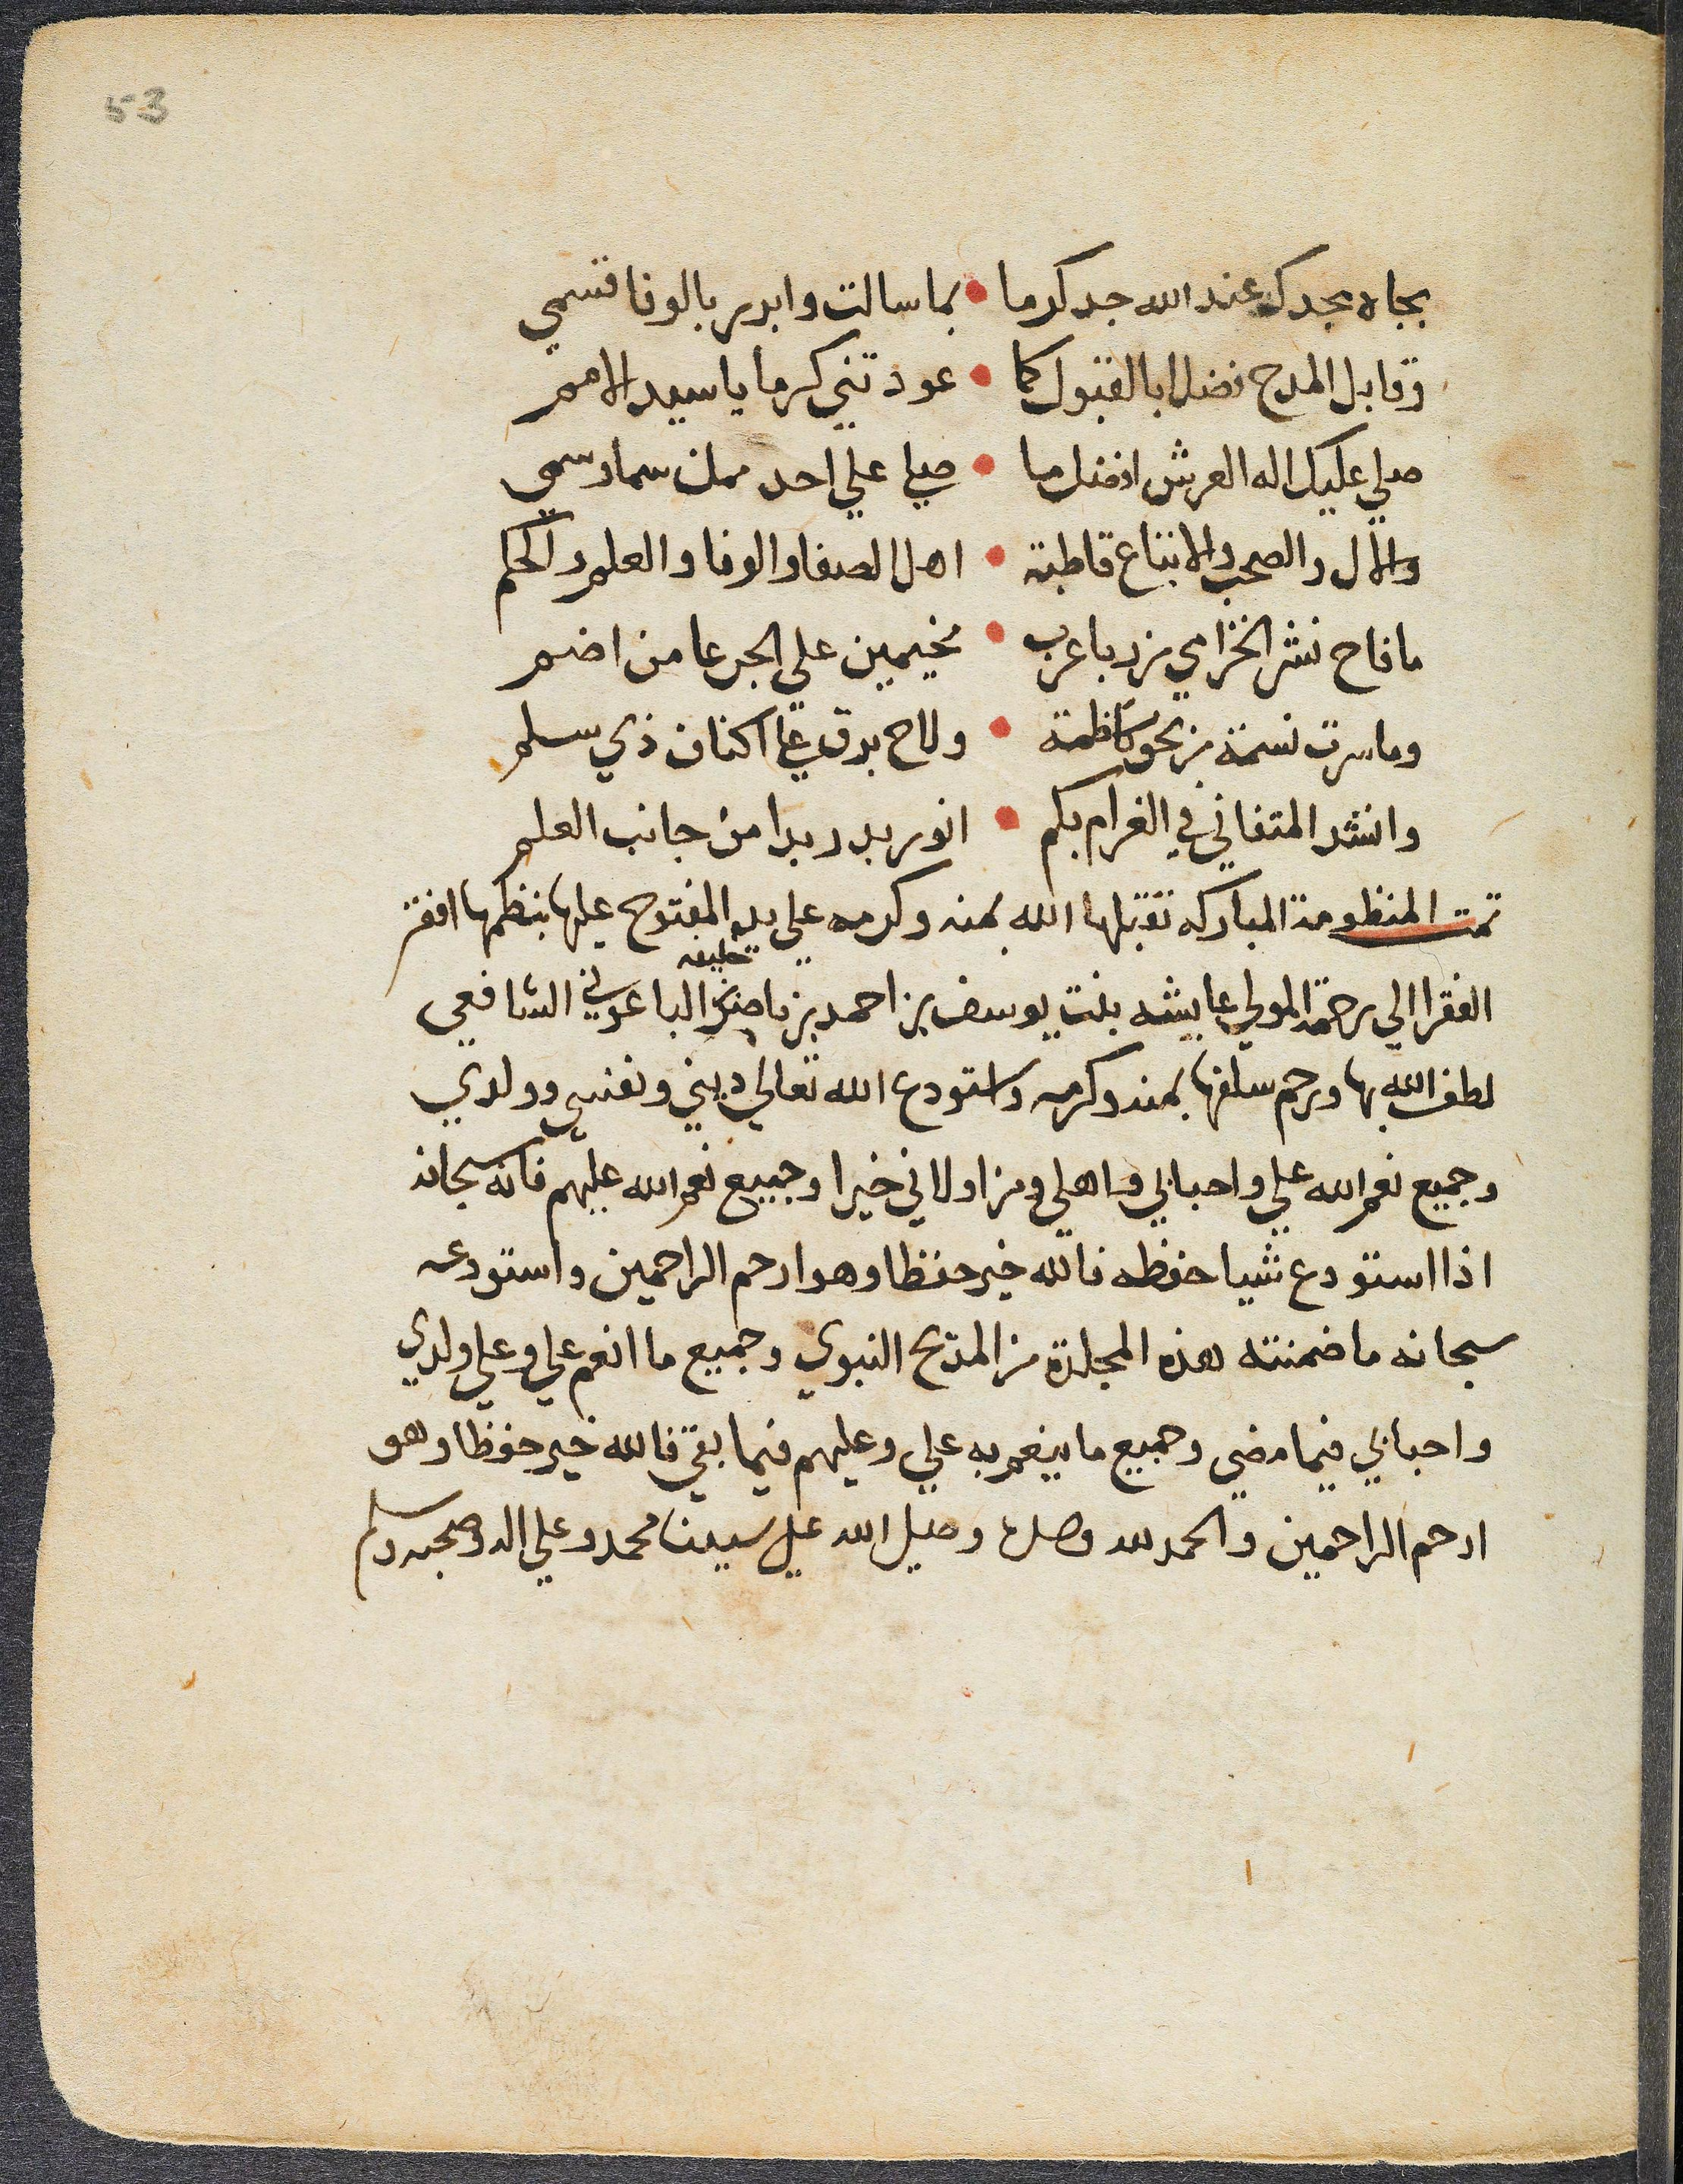 53
بجاه مجدك عند الله جد كرما • بما سالت وابرر بالوفا قسمي
وقابل المدح فضلا بالقبول كما • عودتني كرما يا سيد الامم
صلي عليك اله العرش افضل ما • صلي علي احد ممن سما وسمي
والآل والصحب والاتباع قاطبة • اهل الصفا والوفا والعلم والحكم
ما فاح نشر الخزامي من ربا عرب • مخيمين علي الجرعا من اضم
وما سرت نسمة من نحو كاظمة • ولاح برق علي اكناف ذي سلم
وانشد المتفاني في الغرام بكم • انور بدر بدا من جانب العلم
تمت المنظومة المباركه تقبلها الله بمنه وكرمه علي يد المفتوح عليها بنظمها افقر
الفقرا الي رحمة المولي عايشه بنت يوسف بن احمد بن ناصر بن خليفه الباعوني الشافعي
لطف الله بها ورحم سلفها بمنه وكرمه واستودع الله تعالي ديني ونفسي وولدي
وجميع نعم الله علي واحبابي واهلي ومن اولاني خيرا وجميع نعم الله عليهم فانه سبحانه
اذا استودع شيا حفظه فالله خير حفظا وهو ارحم الراحمين واستودعه
سبحانه ما ضمنته هذه المجلدة من المدح النبوي وجميع ما انعم علي وعلي ولدي
واحبابي فيما مضي وجميع ما ينعم به علي وعليهم فيما بقي فالله خير حفظا وهو
ارحم الراحمين والحمد لله وصلي الله علي سيدنا محمد وعلي اله وصحبه وسلم